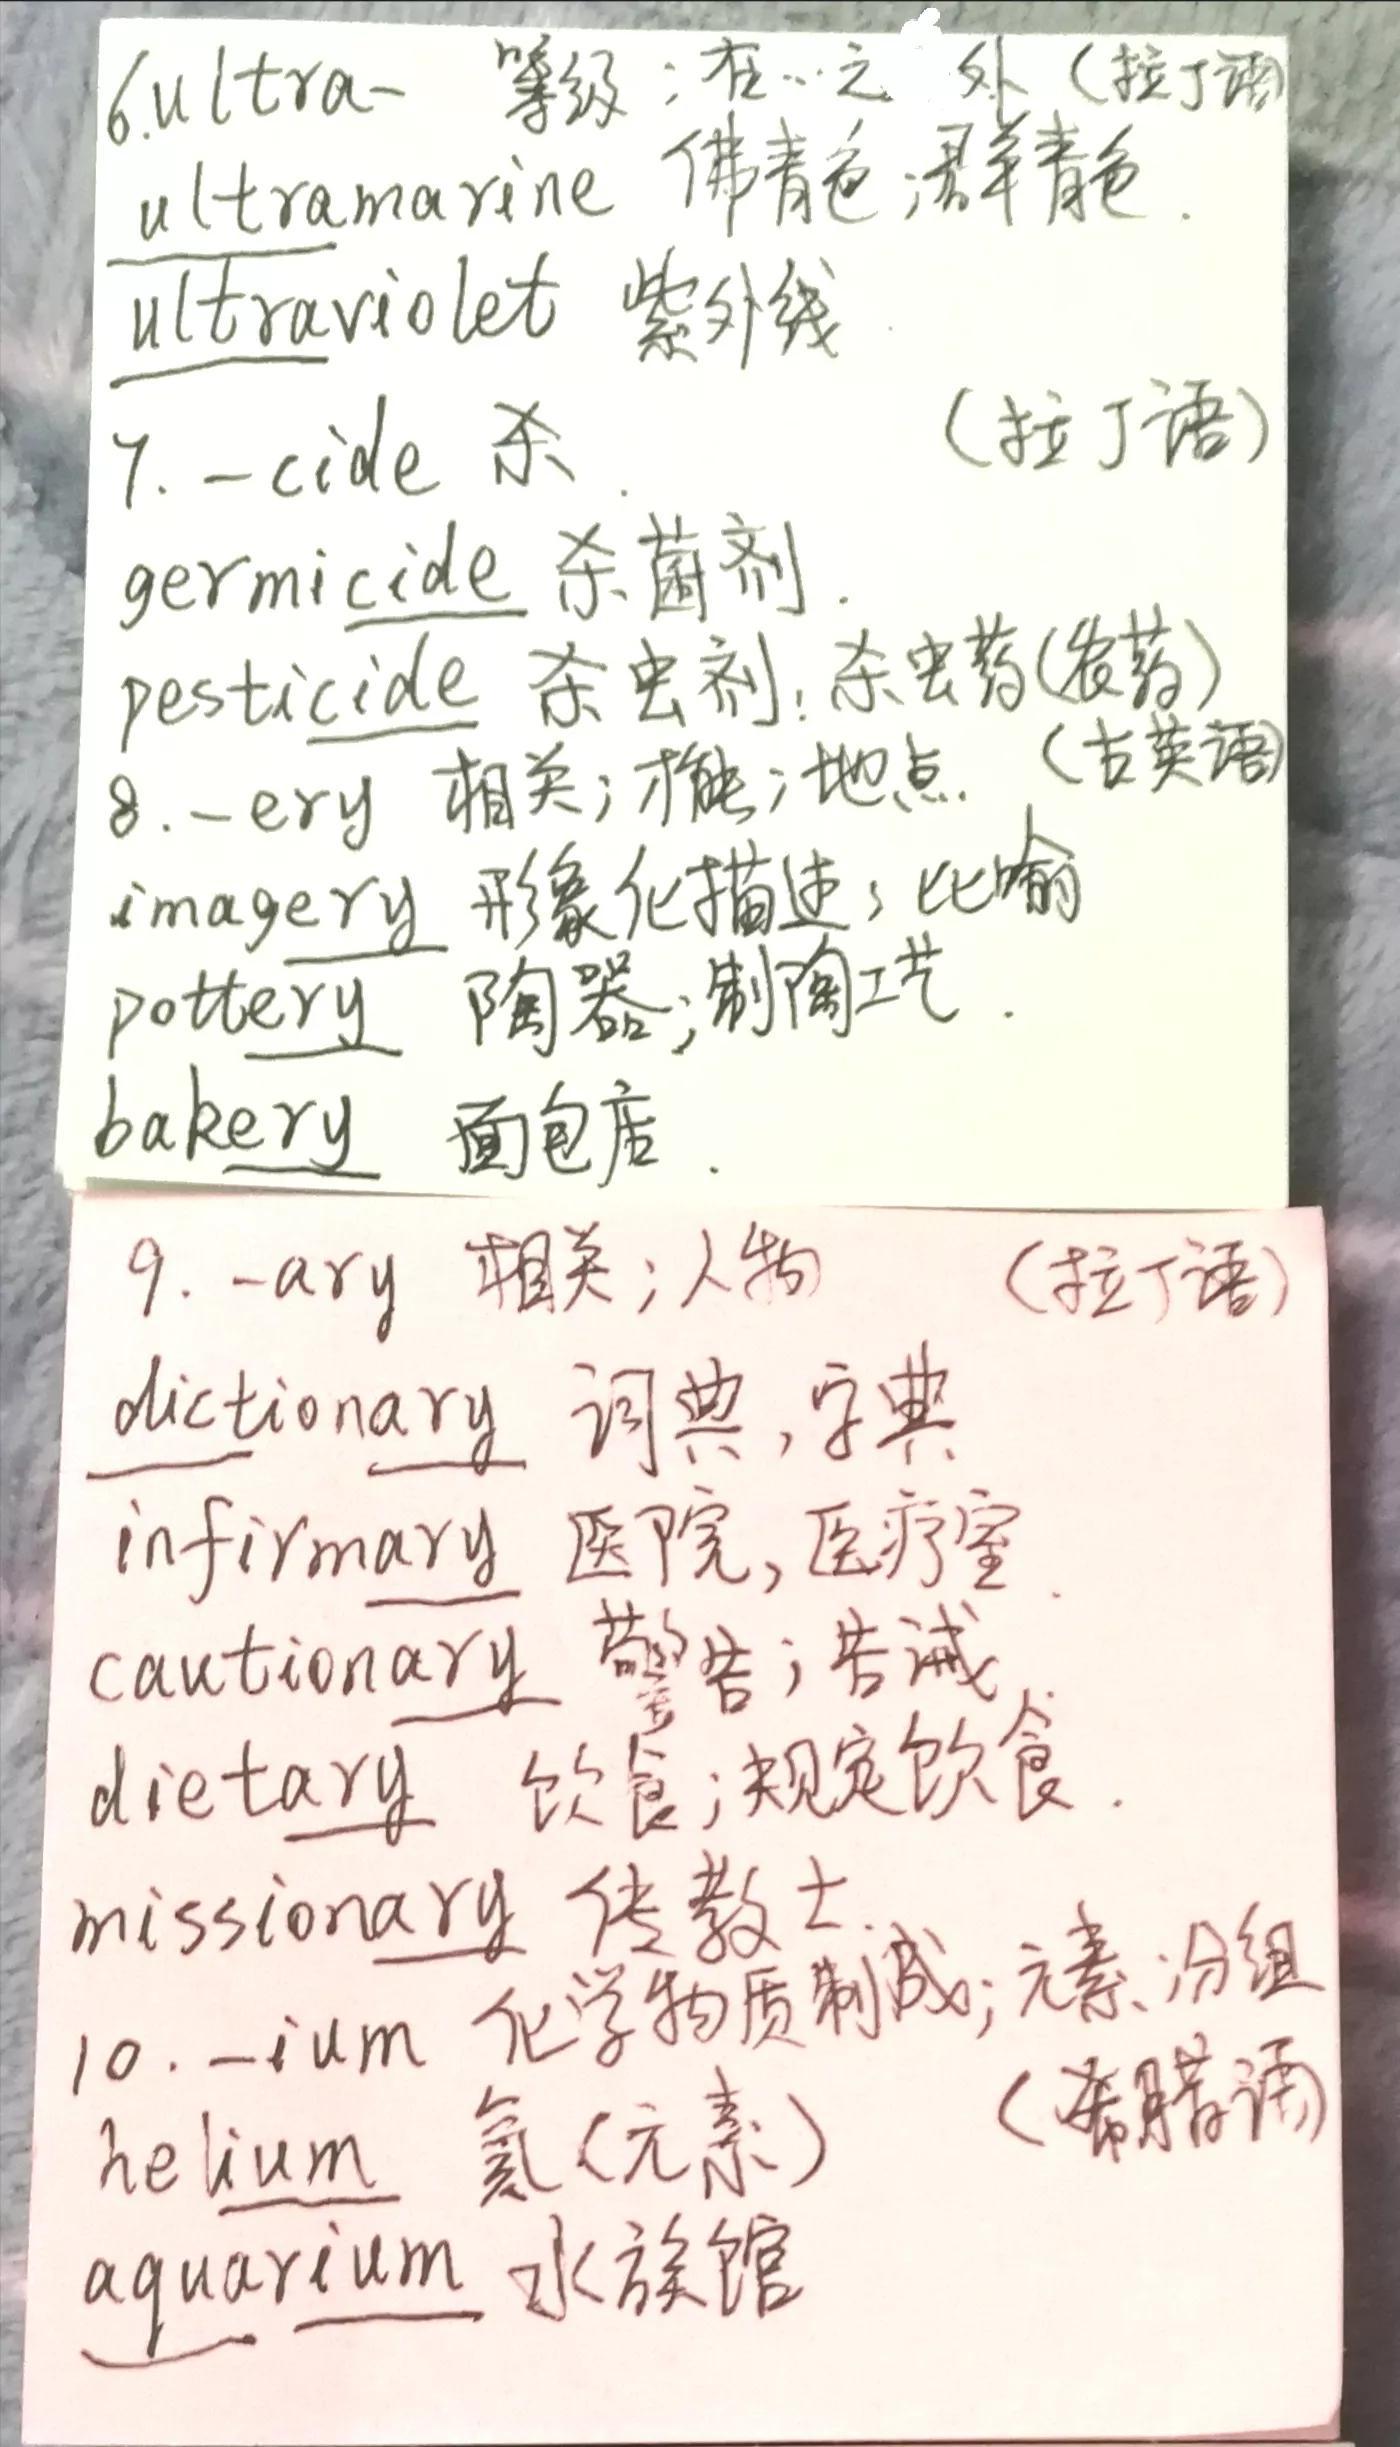 6.ultra- 等级；在…之 外（拉丁语）
ultramarine 佛青色；群青色.
ultraviolet 紫外线.
7. -cide 杀. （拉丁语）
germicide 杀菌剂.
pesticide 杀虫剂；杀虫药（农药）
8. -ery 相关；才能；地点. （古英语）
imagery 形象化描述；比喻
pottery 陶器；制陶工艺.
bakery 面包店.
9. -ary 相关；人物 （拉丁语）
dictionary 词典，字典
infirmary 医院，医疗室.
cautionary 警告；告诫.
dietary 饮食；规定饮食.
missionary 传教士.
10. -ium 化学物质制成；元素、分组
（希腊语）
helium 氦（元素）
aquarium 水族馆